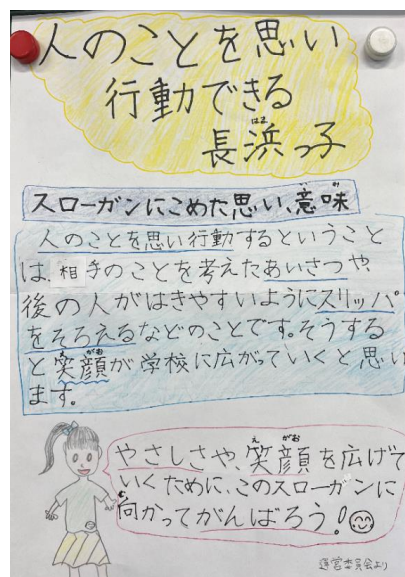 人のことを思い
行動できる
長浜っ子
スローガンにこめた思い、意味
人のことを思い行動するということ
は、相手のことを考えたあいさつや、
後の人がはきやすいようにスリッパ
をそろえるなどのことです。そうする
と笑顔が学校に広がっていくと思い
ます。
やさしさや、笑顔を広げて
いくために、このスローガンに
向かってがんばろう!
運営委員会より